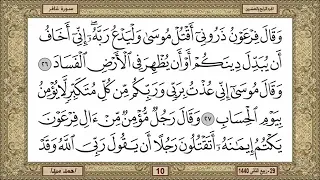 الجزء الرابع والعشرين
سورة غافر
وَقَالَ فِرْعَوْنُ ذَرُونِىٓ أَقْتُلْ مُوسَىٰ وَلْيَدْعُ رَبَّهُۥٓ ۖ إِنِّىٓ أَخَافُ
أَن يُبَدِّلَ دِينَكُمْ أَوْ أَن يُظْهِرَ فِى ٱلْأَرْضِ ٱلْفَسَادَ ٢٦
وَقَالَ مُوسَىٰٓ إِنِّى عُذْتُ بِرَبِّى وَرَبِّكُم مِّن كُلِّ مُتَكَبِّرٍ لَّا يُؤْمِنُ
بِيَوْمِ ٱلْحِسَابِ ٢٧ وَقَالَ رَجُلٌ مُّؤْمِنٌ مِّنْ ءَالِ فِرْعَوْنَ
يَكْتُمُ إِيمَـٰنَهُۥٓ أَتَقْتُلُونَ رَجُلًا أَن يَقُولَ رَبِّىَ ٱللَّهُ وَقَدْ
29- ربيع الثاني 1440
10